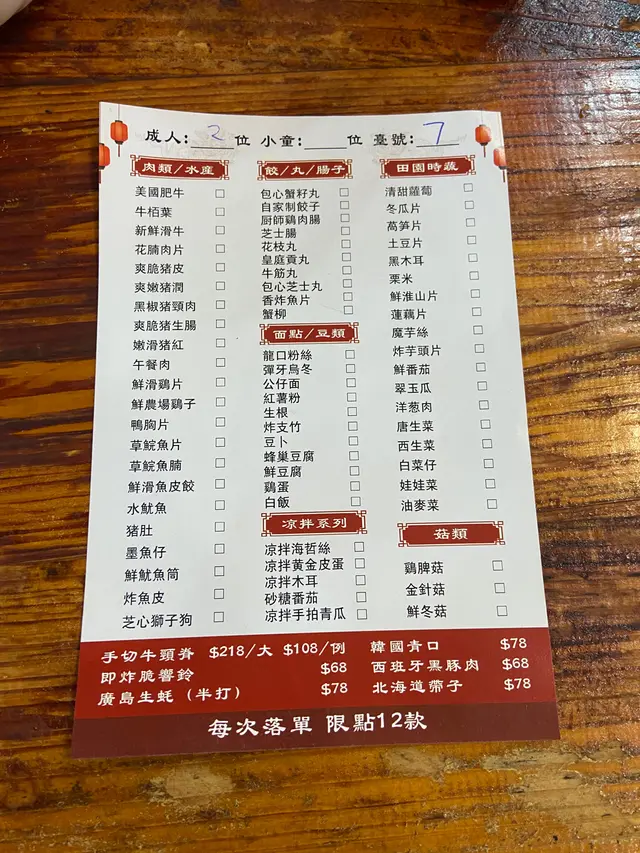 成人: 2 位 小童: 位 臺號: 7
肉類/水產
美國肥牛
牛栢葉
新鮮滑牛
花腩肉片
爽脆猪皮
爽嫩猪潤
黑椒猪頸肉
爽脆猪生腸
嫩滑猪紅
午餐肉
鮮滑鷄片
鮮農場鷄子
鴨胸片
草鯇魚片
草鯇魚腩
鮮滑魚皮餃
水魷魚
猪肚
墨魚仔
鮮魷魚筒
炸魚皮
芝心獅子狗
餃/丸/腸子
包心蟹籽丸
自家制餃子
厨師鷄肉腸
芝士腸
花枝丸
皇庭貢丸
牛筋丸
包心芝士丸
香炸魚片
蟹柳
面點/豆類
龍口粉絲
彈牙烏冬
公仔面
紅薯粉
生根
炸支竹
豆卜
蜂巢豆腐
鮮豆腐
鷄蛋
白飯
凉拌系列
凉拌海哲絲
凉拌黄金皮蛋
凉拌木耳
砂糖番茄
凉拌手拍青瓜
田園時蔬
清甜蘿蔔
冬瓜片
萵笋片
土豆片
黑木耳
粟米
鮮淮山片
蓮藕片
魔芋絲
炸芋頭片
鮮番茄
翠玉瓜
洋葱肉
唐生菜
西生菜
白菜仔
娃娃菜
油麥菜
菇類
鷄脾菇
金針菇
鮮冬菇
手切牛頸脊 $218/大 $108/例
即炸脆響鈴 $68
廣島生蚝（半打） $78
韓國青口 $78
西班牙黑豚肉 $68
北海道帶子 $78
每次落單 限點12款